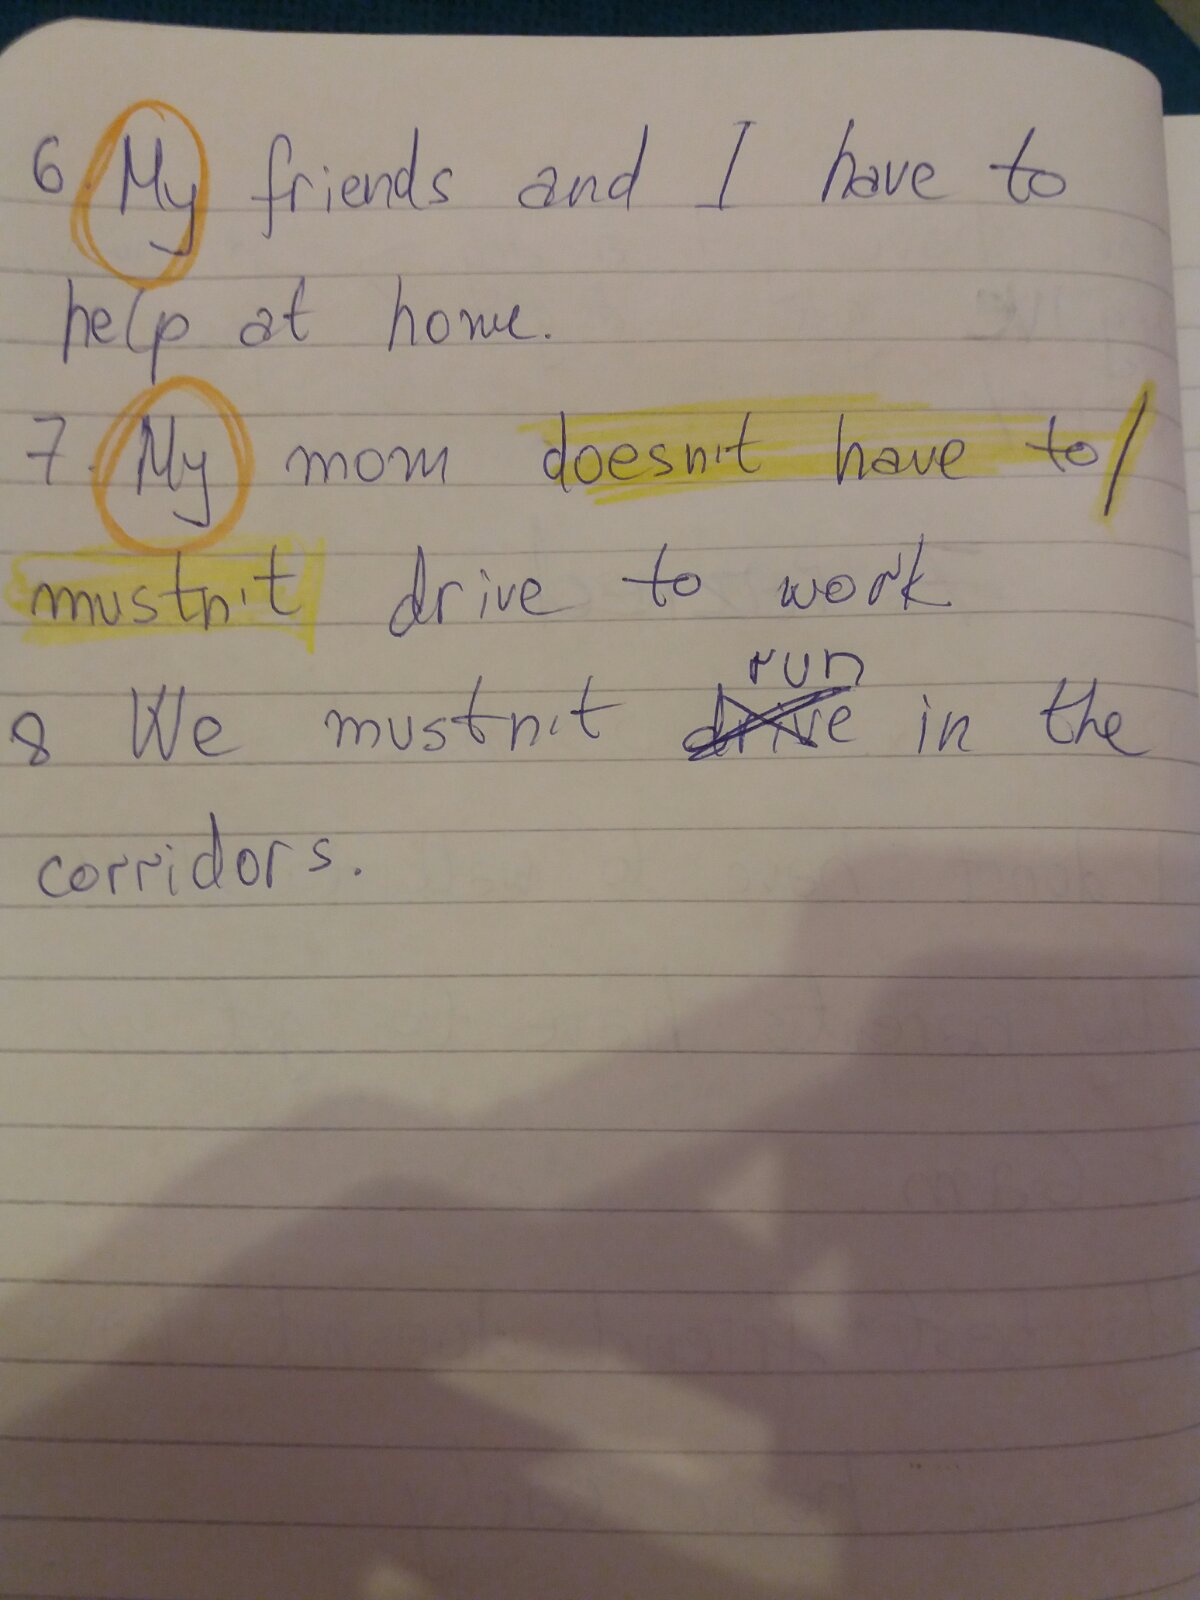 6. My friends and I have to
help at home.
7. My mom doesn't have to/
mustn't drive to work
run
8 We mustn't drive in the
corridors.